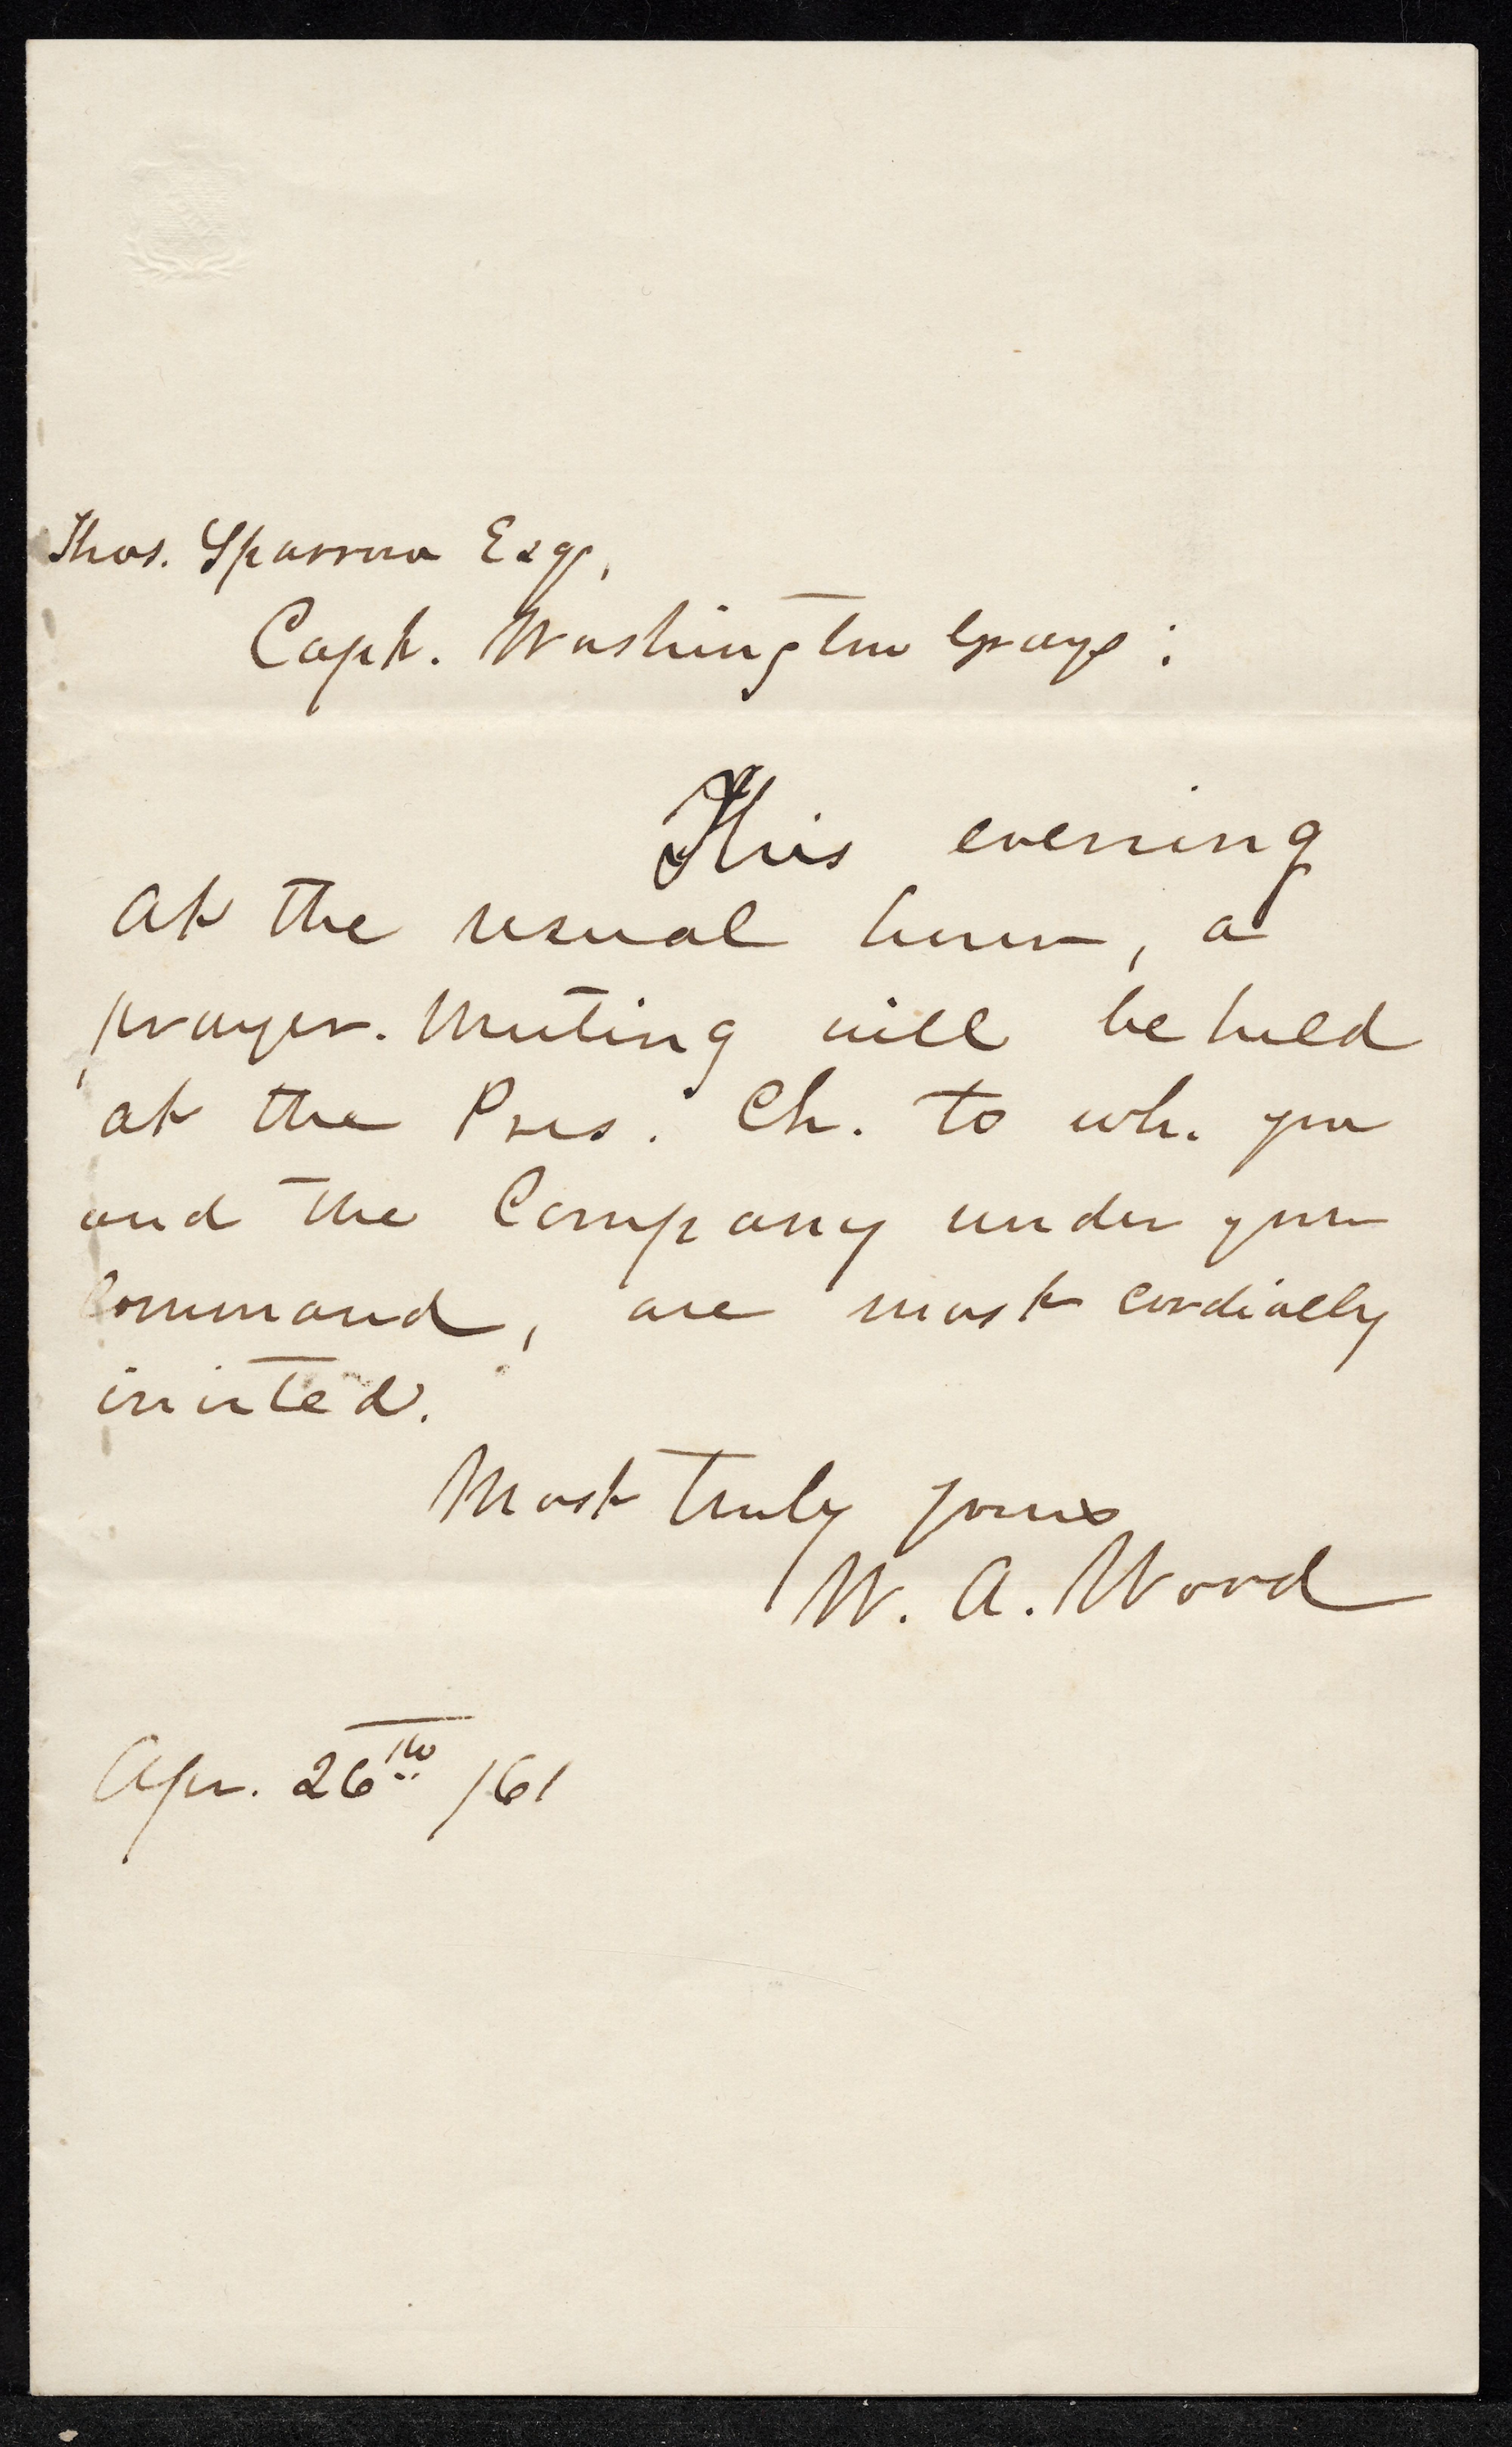 Thos. Sparrow Esq,
Capt. Washington Grays:
This evening
at the usual hour, a
prayer-meeting will be held
at the Pres. Ch. to wh. you
and the Company under your
command, are most cordially
invited.
Most truly yours
W. A. Wood
Apr. 26th /61